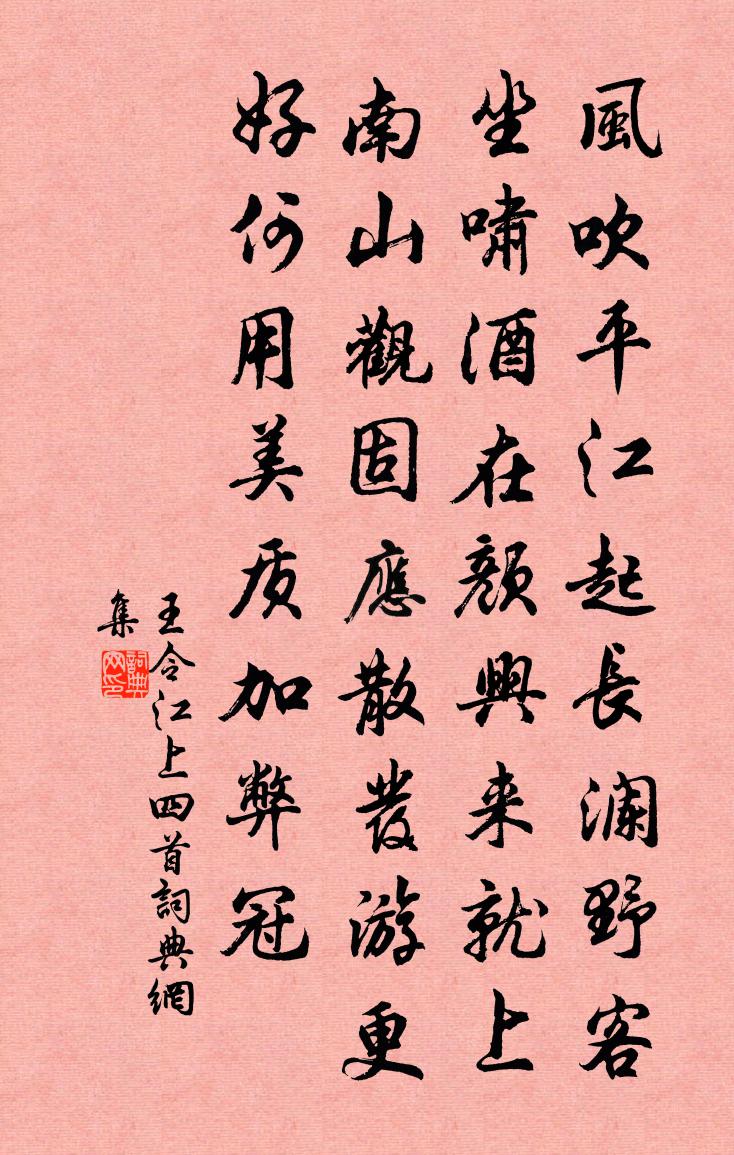 風吹平江起長瀾野客
坐嘯酒在顏興来就上
南山觀固應散發游更
好何用美质加弊冠
王令江上四首詞典網
集
詞典
网印